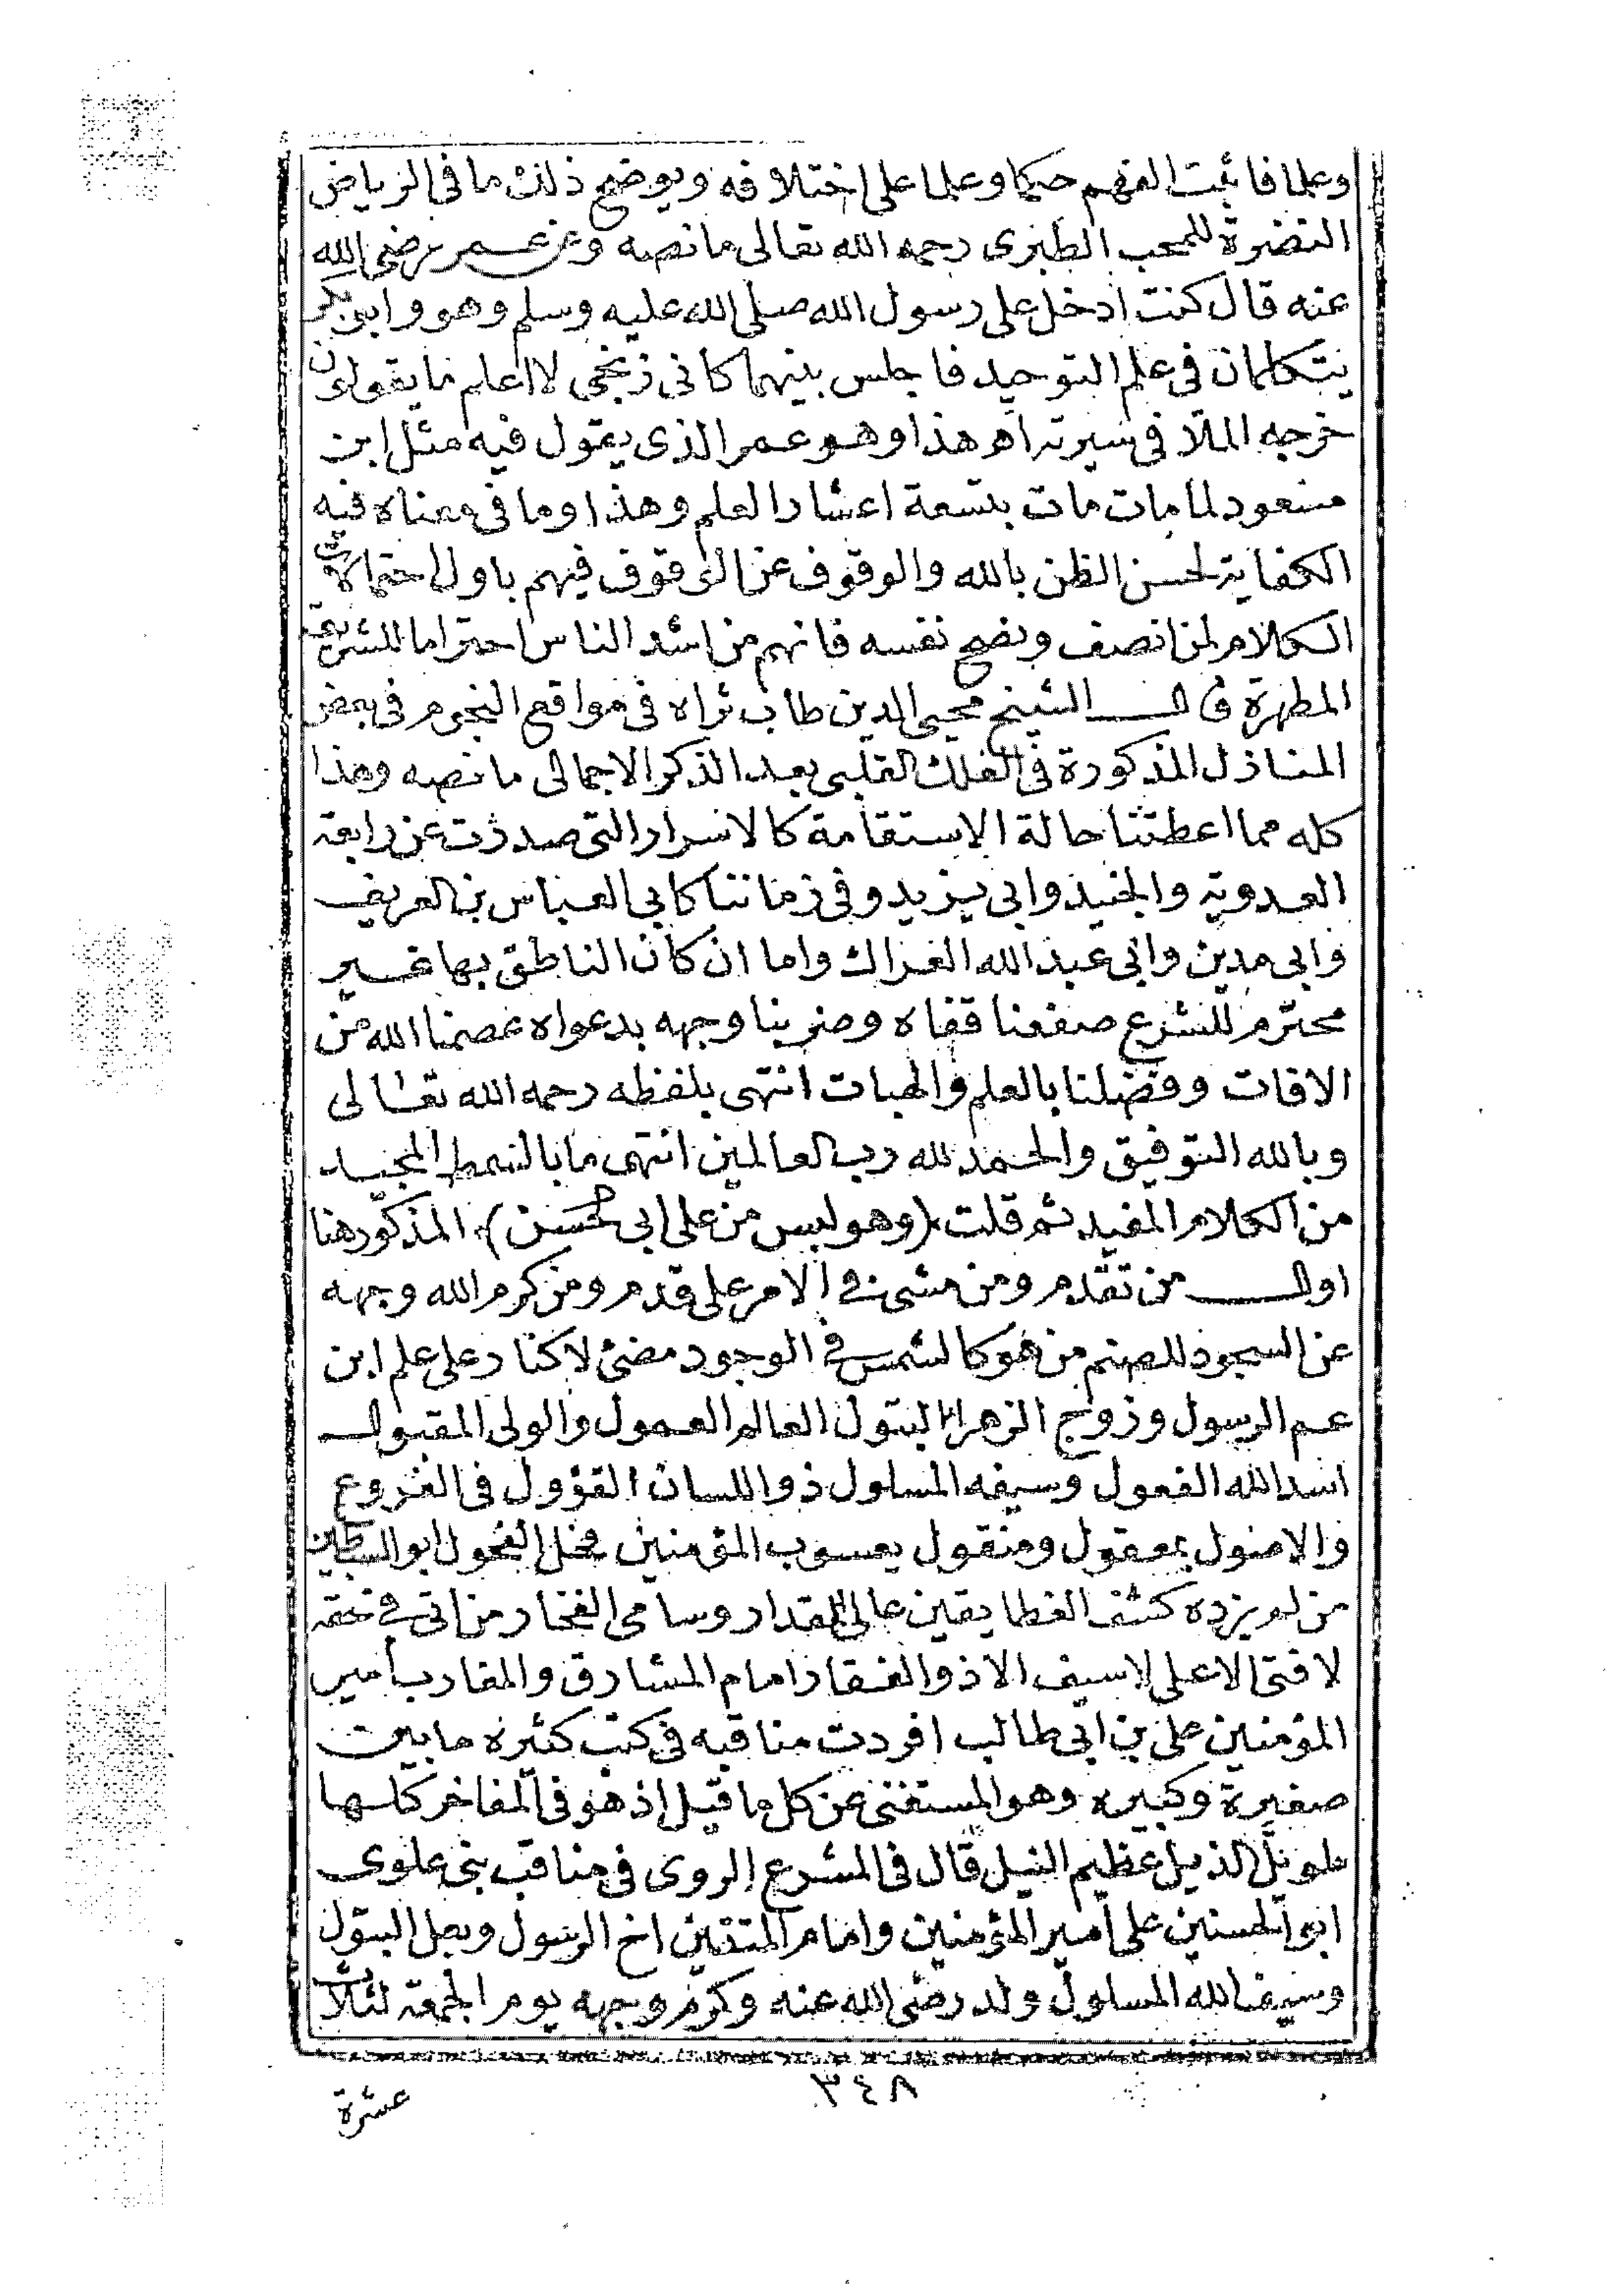 وعلما فاثبت الفهم حكما وعلما على اختلافه ويوضح ذلك ما فى الرياض
النضرة للمحب الطبرى رحمه الله تعالى ما نصه وعن عمر رضى الله
عنه قال كنت ادخل على رسول الله صلى الله عليه وسلم وهو وابو بكر
يتكلمان فى علم التوحيد فاجلس بينهما كانى زنجى لا اعلم ما يقولان
خرجه الملا فى سيرته اه هذا وهو عمر الذى يقول فيه مثل ابن
مسعود لما مات مات بتسعة اعشار العلم وهذا وما فى معناه فيه
الكفاية لحسن الظن بالله والوقوف عن الوقوف فيهم باول احتمالات
الكلام لمن انصف ونصح نفسه فانهم من اشد الناس احتراما للشريعة
المطهرة قال الشيخ محيى الدين طاب ثراه فى مواقع النجوم فى بعض
المنازل المذكورة فى الفلك القلبى بعد الذكر الاجمالى ما نصه وهذا
كله مما اعطتنا حالة الاستقامة كالاسرار التى صدرت عن رابعة
العدوية والجنيد وابى يزيد وفى زماننا كابى العباس بن العريف
وابى مدين وابى عبد الله الغزال واما ان كان الناطق بها غير
محترم للشرع صفعنا قفاه وضربنا وجهه بدعواه عصمنا الله من
الافات وفضلنا بالعلم والهبات انتهى بلفظه رحمه الله تعالى
وبالله التوفيق والحمد لله رب العالمين انتهى ما بالسمط المجيد
من الكلام المفيد ثم قلت (وهو لبس من على ابى حسن) المذكور هنا
اول من تقدم ومن مشى فى الامر على قدم ومن كرم الله وجهه
عن السجود للصنم من هو كالشمس فى الوجود مضئ لا كنار على علم ابن
عم الرسول وزوج الزهراء البتول العالم العمول والولى المقبول
اسد الله الفعول وسيفه المسلول ذو اللسان القؤول فى الفروع
والاصول بمعقول ومنقول يعسوب المؤمنين فحل الفحول ابو السبطين
من لم يزده كشف الغطا يقين عالى المقدار وسامى الفخار من اتى فى حقه
لا فتى الا على لا سيف الا ذو الفقار امام المشارق والمغارب أمير
المؤمنين على بن ابى طالب افردت مناقبه فى كتب كثيره ما بين
صغيرة وكبيره وهو المستغنى عن كل ما قيل إذ هو فى المفاخر كلها
طويل الذيل عظيم النيل قال فى المشرع الروى فى مناقب بنى علوى
ابو الحسنين على أمير المؤمنين وامام المتقين اخ الرسول وبعل البتول
وسيف الله المسلول ولد رضى الله عنه وكرم وجهه يوم الجمعة لثلاث
عشرة
٣٤٨